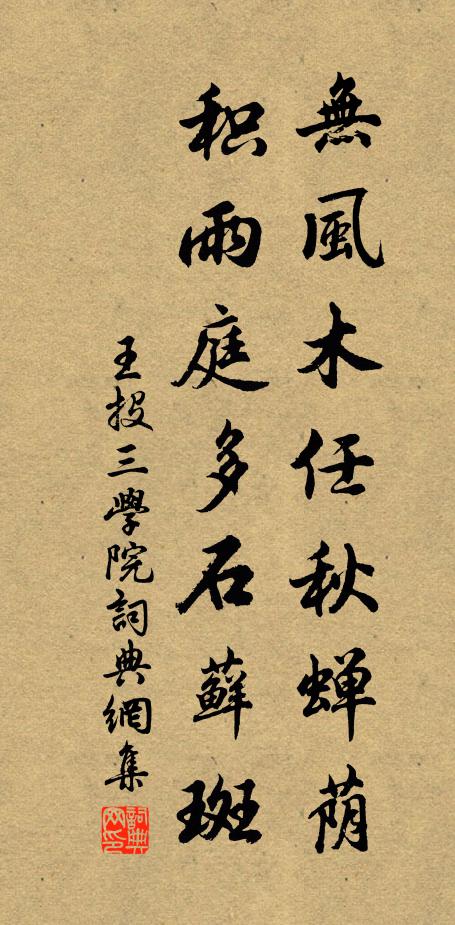 無風木任秋蝉荫
积雨庭多石蘚斑
王投三學院詞典網集
詞典网印